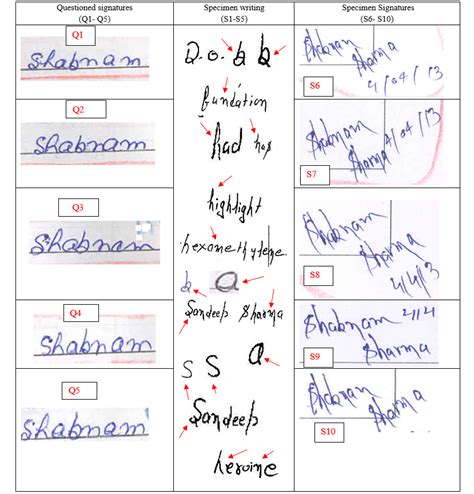 Questioned signatures
(Q1- Q5)
Specimen writing
(S1-S5)
Specimen Signatures
(S6- S10)
Q1
Shabnam
Q2
Shabnam
Q3
Shabnam
Q4
Shabnam
Q5
Shabnam
D.o.b b
fundation
had has
highlight
hexomethylene
b a
Sandeep Sharma
S S a
Sandeep
heroine
Shabnam
Sharma
4/04/13
S6
Shabnam
Sharma
4/04/13
S7
Shabnam
Sharma
4/4/13
S8
Shabnam 4/4
Sharma
S9
Shabnam
Sharma
S10